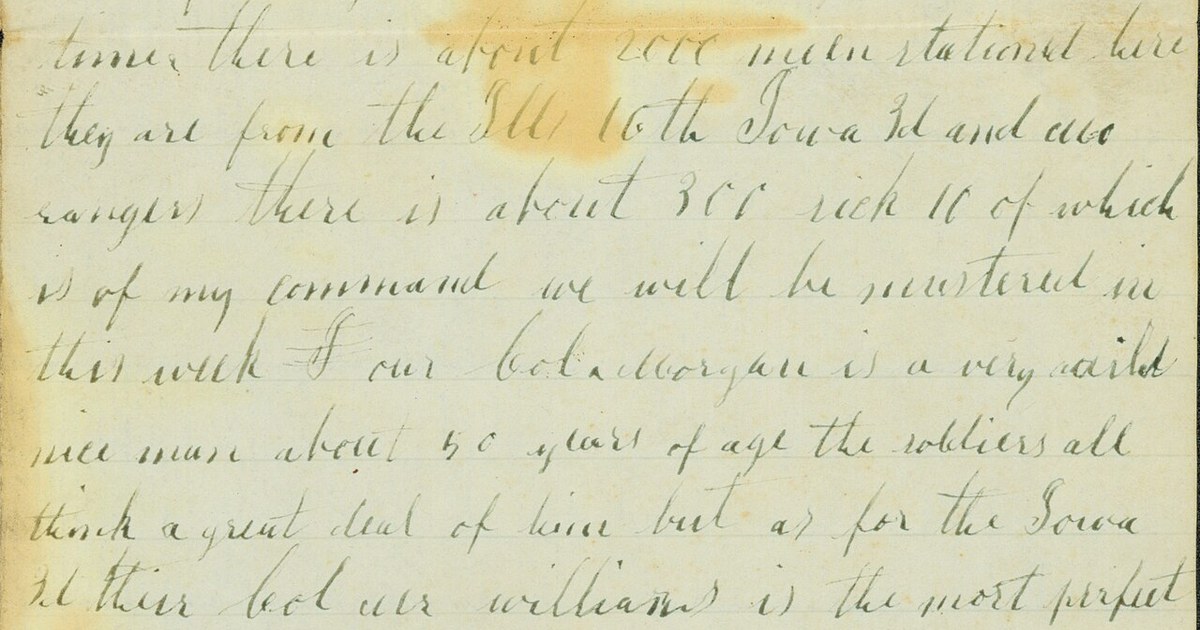 time, there is about 2000 men stationed here
they are from the Ills 16th Iowa 3d and mo
rangers there is about 300 sick 10 of which
is of my command we will be mustered in
this week our Col. Morgan is a very
nice man about 50 years of age the soldiers all
think a great deal of him but as for the Iowa
3d their Col mr williams is the most perfect